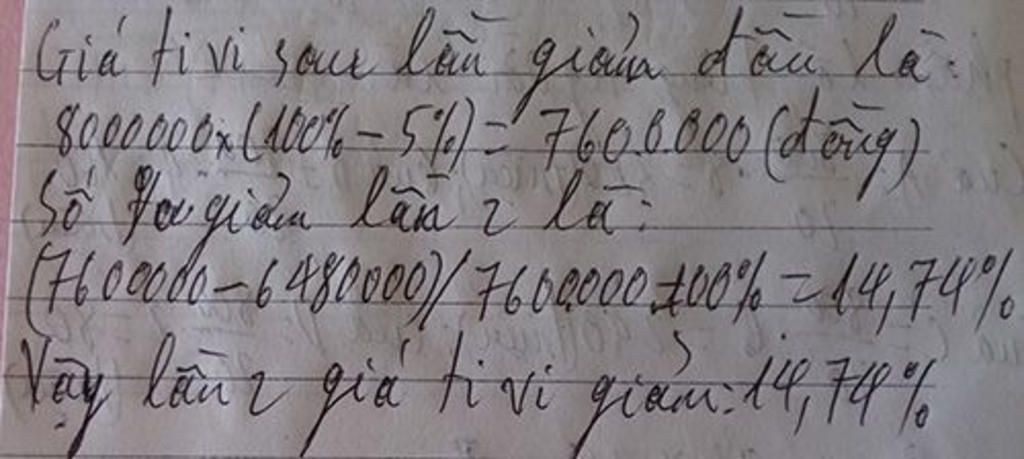 Giá ti vi sau lần giảm đầu là:
8000000x(100% - 5%) = 7600.000 (đồng)
Số % giảm lần 2 là:
(7600000 - 6480000)/ 7600.000.100% = 14,74%
Vậy lần 2 giá ti vi giảm: 14,74%